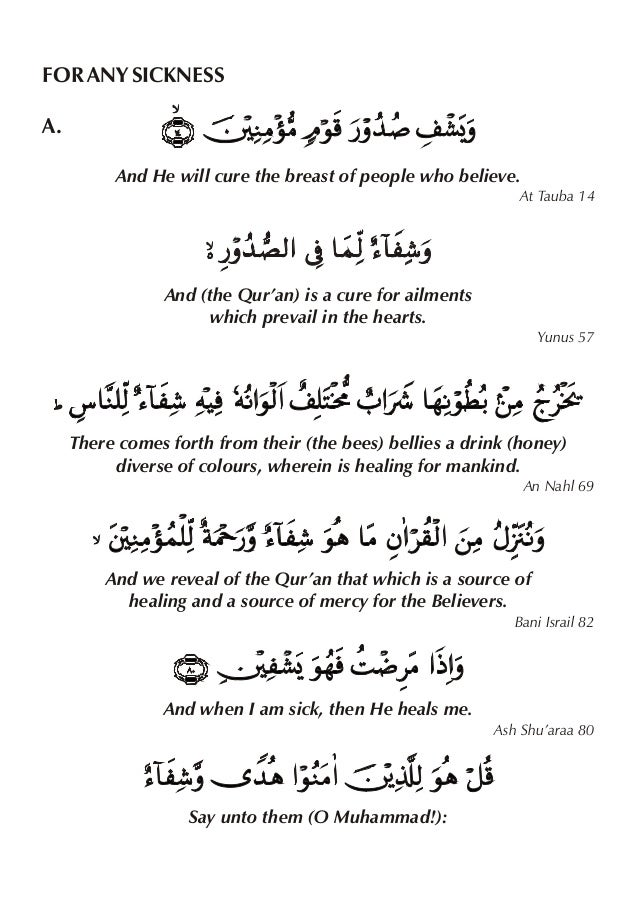 FOR ANY SICKNESS
A.
وَيَشْفِ صُدُوْرَ قَوْمٍ مُّؤْمِنِيْنَ ۙ ﴿۱۴﴾
And He will cure the breast of people who believe.
At Tauba 14
وَشِفَآءٌ لِّمَا فِى الصُّدُوْرِ ۙ۬
And (the Qur’an) is a cure for ailments
which prevail in the hearts.
Yunus 57
يَخْرُجُ مِنْۢ بُطُوْنِهَا شَرَابٌ مُّخْتَلِفٌ اَلْوَانُهٗ فِيْهِ شِفَآءٌ لِّلنَّاسِ ؕ
There comes forth from their (the bees) bellies a drink (honey)
diverse of colours, wherein is healing for mankind.
An Nahl 69
وَنُنَزِّلُ مِنَ الْقُرْاٰنِ مَا هُوَ شِفَآءٌ وَّرَحْمَةٌ لِّلْمُؤْمِنِيْنَ ۙ
And we reveal of the Qur’an that which is a source of
healing and a source of mercy for the Believers.
Bani Israil 82
وَاِذَا مَرِضْتُ فَهُوَ يَشْفِيْنِ ﴿۸۰﴾
And when I am sick, then He heals me.
Ash Shu’araa 80
قُلْ هُوَ لِلَّذِيْنَ اٰمَنُوْا هُدًى وَّشِفَآءٌ
Say unto them (O Muhammad!):